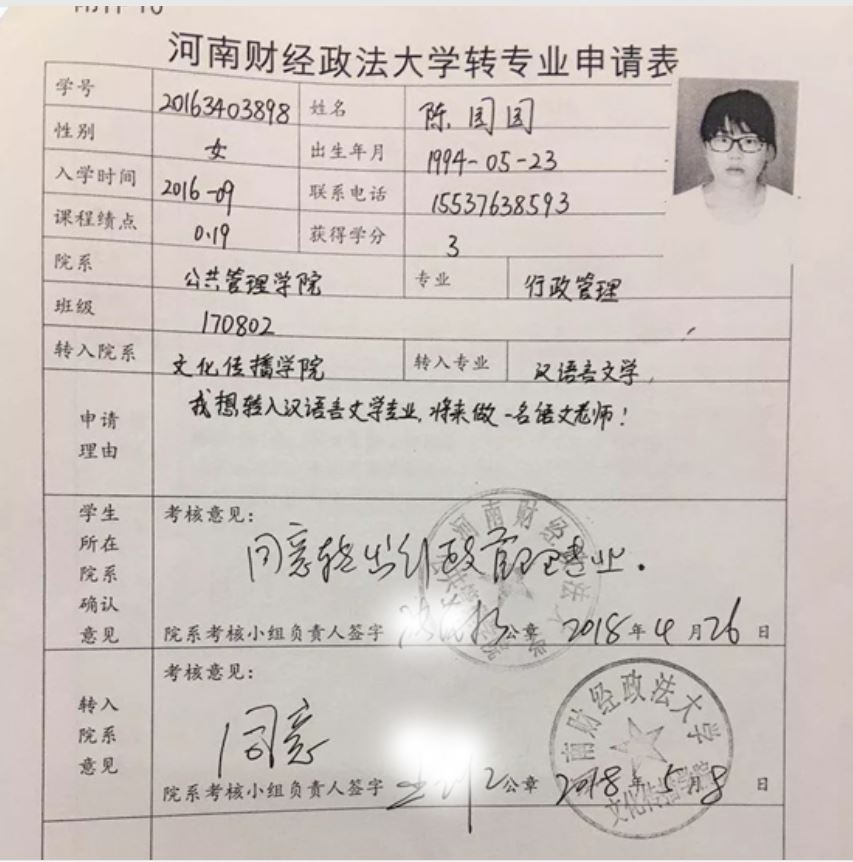 附件10
河南财经政法大学转专业申请表
学号 20163403898 姓名 陈园园
性别 女 出生年月 1994-05-23
入学时间 2016-09 联系电话 15537638593
课程绩点 0.19 获得学分 3
院系 公共管理学院 专业 行政管理
班级 170802
转入院系 文化传播学院 转入专业 汉语言文学
申请理由 我想转入汉语言文学专业,将来做一名语文老师!
学生所在院系确认意见 考核意见:
同意转出行政管理专业.
院系考核小组负责人签字 公章 2018年4月26日
河南财经政法大学
转入院系意见 考核意见:
同意
院系考核小组负责人签字 公章 2018年5月8日
河南财经政法大学
文化传播学院